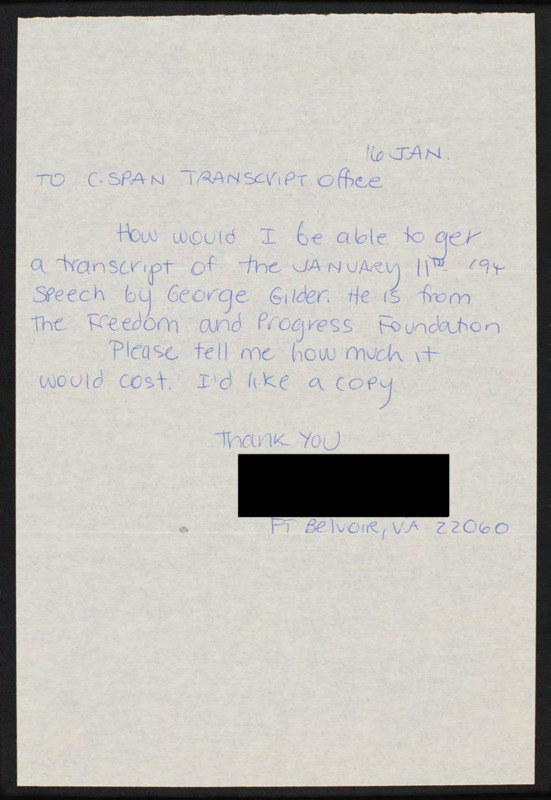 16 JAN.
TO C-SPAN TRANSCRIPT Office
How would I be able to get
a transcript of the JANUARY 11TH '94
Speech by George Gilder. He is from
the Freedom and Progress Foundation
Please tell me how much it
would cost. I'd like a copy
Thank You
FT Belvoir, VA 22060